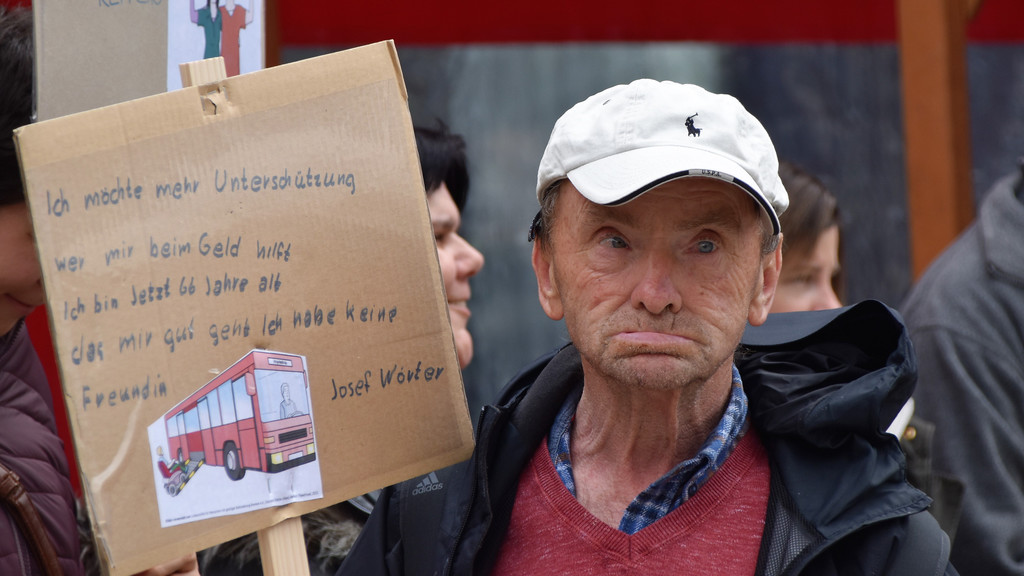 Ich möchte mehr Unterschützung
wer mir beim Geld hilft
Ich bin Jetzt 66 Jahre alt
das mir gut geht Ich habe Keine
Freundin
Josef Wörter
adidas
U.S.P.A.